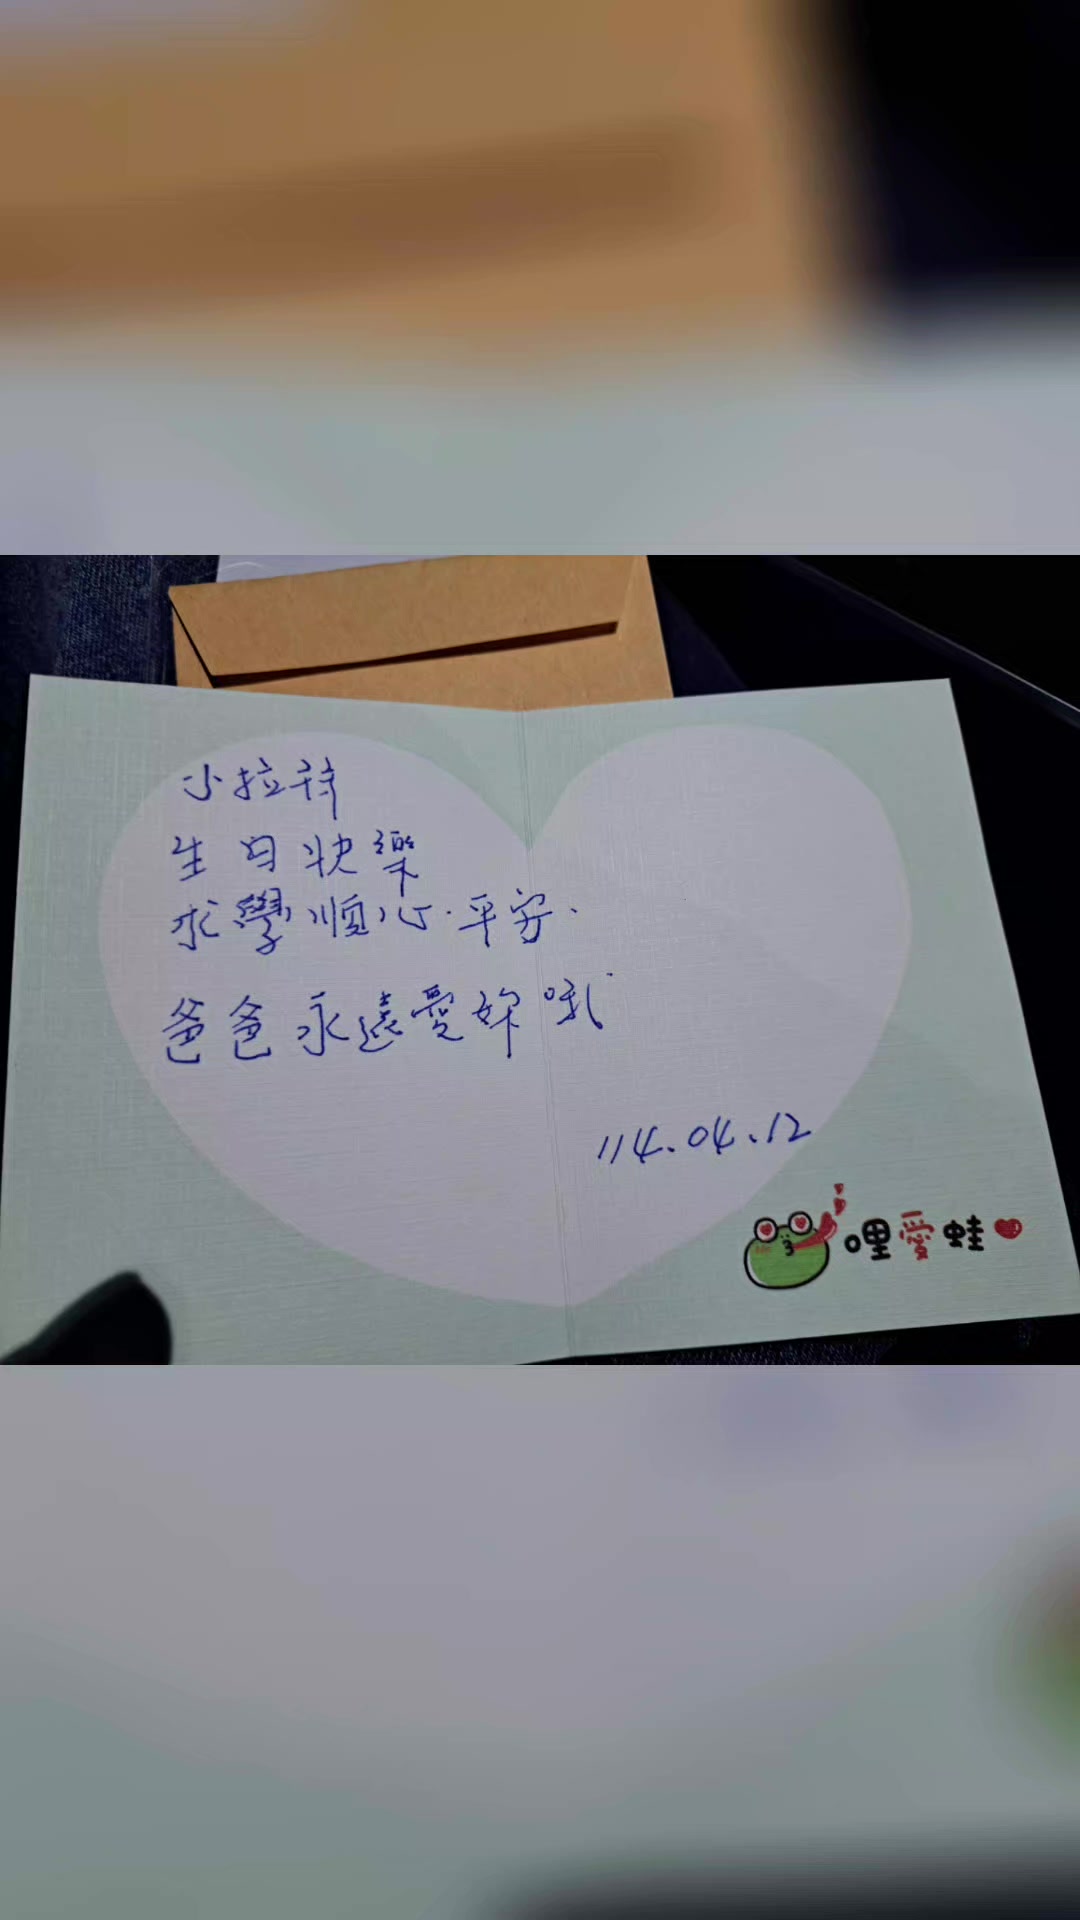 小拉
生日快樂
求學順心.平安.
爸爸永遠愛妳哦
114.04.12
哩愛蛙